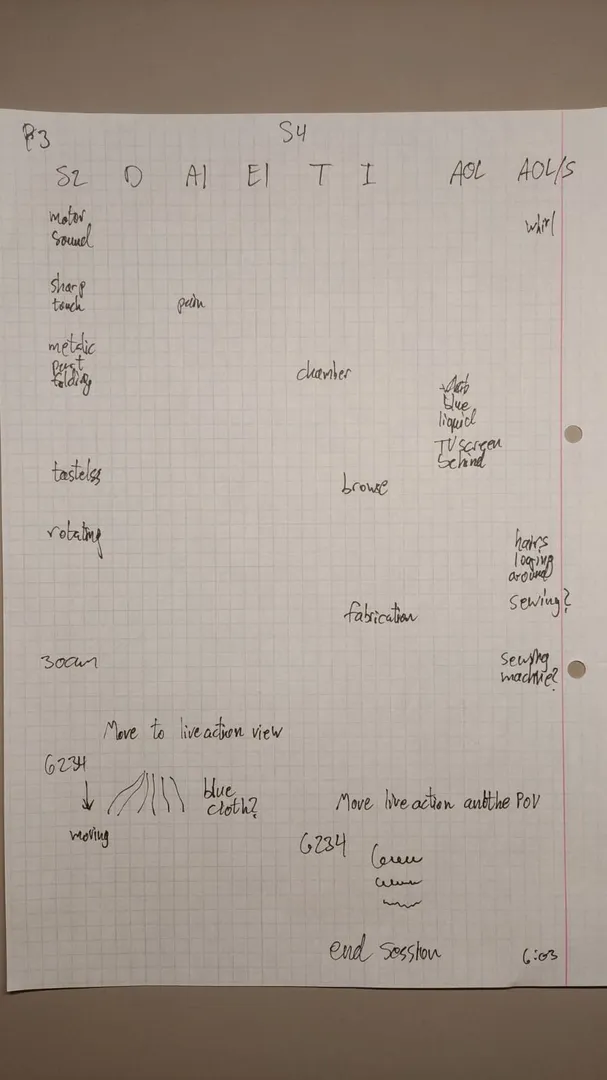 P3
S4
S2 D AI EI T I AOL AOL/S
motor
sound
whirl
sharp
touch
pain
metalic
folding
chamber
blue
liquid
TV screen
behind
tasteless
browse
rotating
hairs
around
sewing?
fabrication
30cm
sewing
machine?
Move to live action view
6234
moving
blue
cloth?
Move live action POV
6234
end session
6:03